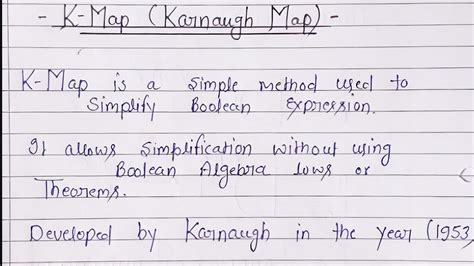 - K-Map (Karnaugh Map) -
K-Map is a simple method used to
Simplify Boolean Expression.
It allows Simplification without using
Boolean Algebra lows or
Theorems.
Developed by Karnaugh in the year (1953,